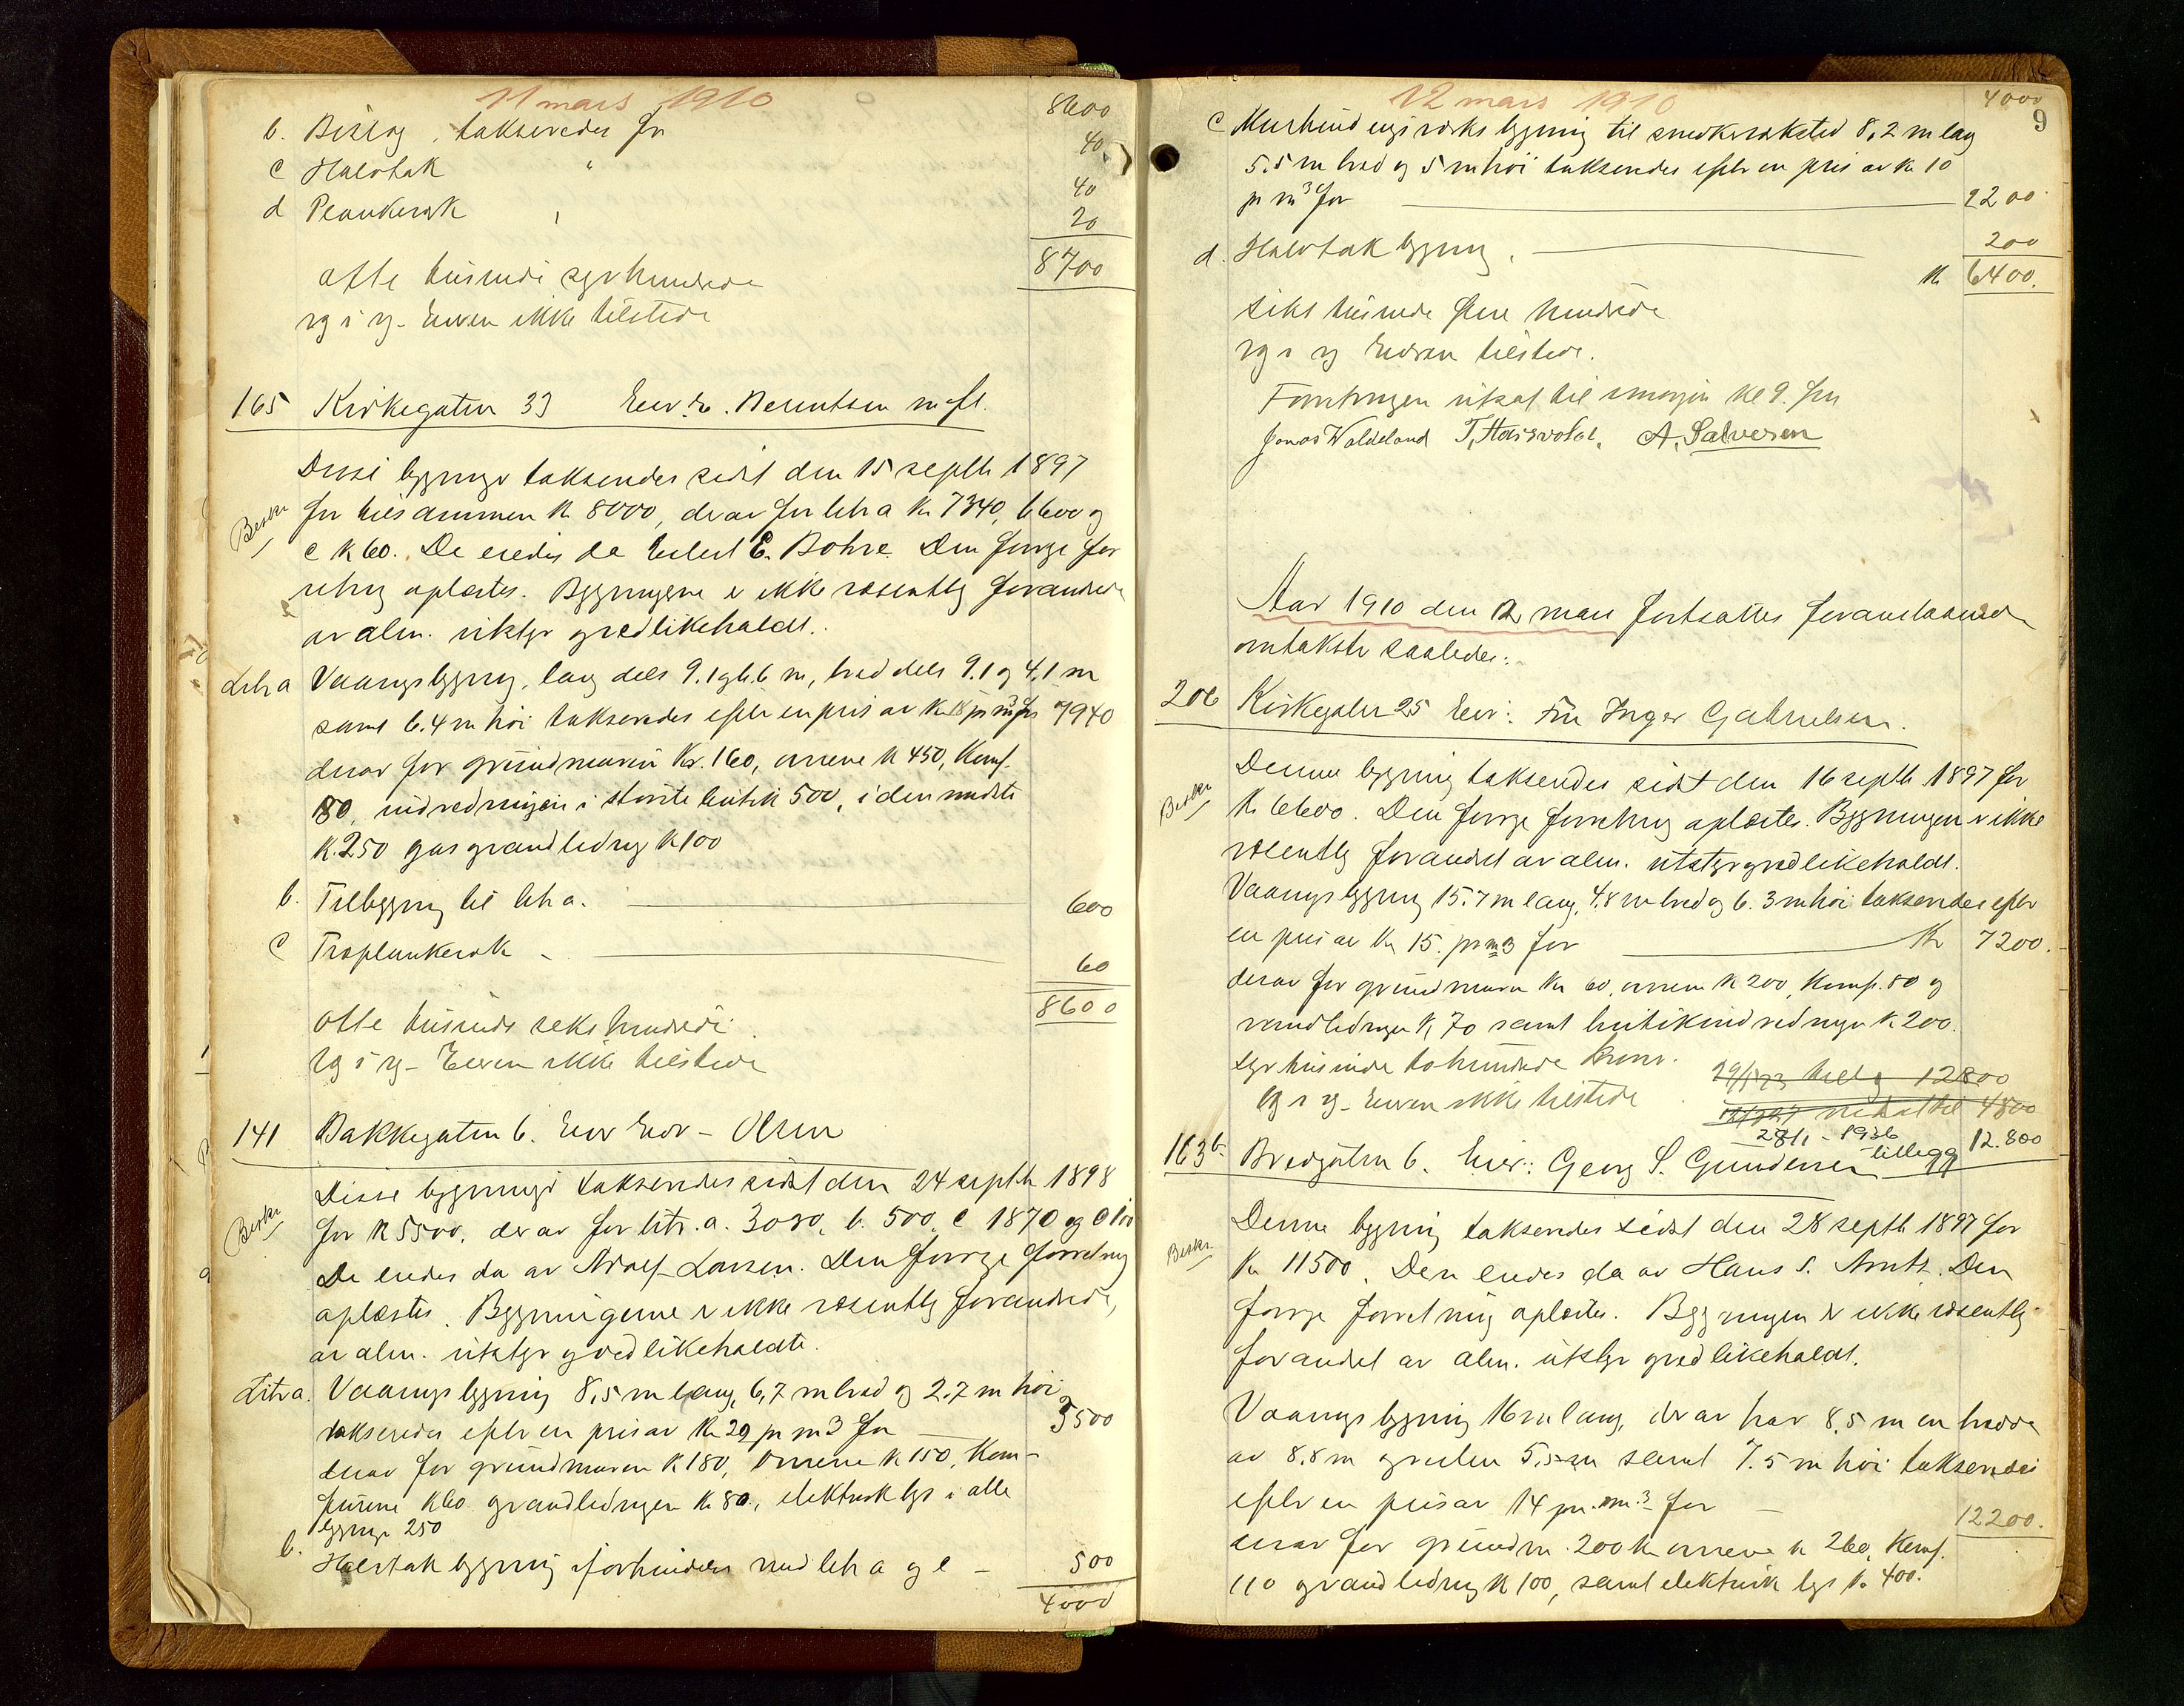 11 mars 1910
8600
b. Bislag, takseredes for 40
c Halvtak " 40
d Plankeræk " 20
8700
otte tusinde syv hundrede
og i ny - Eieren ikke tilstede
165 Kirkegaten 33 Eier: E. Berentsen m. fl.
Disse bygninger takseredes sidst den 15 septb 1897
Beskr for tilsammen kr 8000, derav for litr a kr 7340, b 600 og
c kr 60. De eiedes da Eilert E. Bohre. Den forrige for
retning oplæstes. Bygningerne er ikke væsentlig forandrede
av alm. utstyr og vedlikeholdt.
Litr a Vaaningsbygning, lang dels 9.1 og 6.6 m, bred dels 9.1 og 4,1 m
samt 6.4 m høi takseredes efter en pris av kr 18 pr m3 for 7940
derav for grundmuren Kr. 160, ovnene kr 450, Komf.
180, indredningen i største butik 500, i den mindste
kr. 250 gas og vandledning kr 100
b. Tilbygning til litr a. 600
c Træplankeræk 60
8600
otte tusinde seks hundrede
og i ny - Eieren ikke tilstede
141 Bakkegaten 6. Eier Edv - Olsen
Disse bygninger takseredes sidst den 24 septb 1898
Beskr for kr 5500, derav for litr. a. 3030, b. 500, c 1870 og d 100
De eiedes da av Adolf Larsen. Den forrige forretning
oplæstes. Bygningerne er ikke væsentlig forandrede,
av alm. utstyr og vedlikeholdte.
Litra. Vaaningsbygning 8,5 m lang, 6,7 m bred og 2.7 m høi
takseredes efter en pris av kr 22 pr m3 for 3500
derav for grundmuren kr 180, ovnene kr 150, Kom-
furene kr 60 og vandledningen kr 80, elektrisk lys i alle
bygninger 250
b. Halvtakbygning i forbindelse med litr a og c - 500
4000
12 mars 1910
4000
9
c Murbindingsverksbygning til snedkerverksted 8,2 m lang
5.5 m bred og 5 m høi takseredes efter en pris av kr 10
pr m3 for 2200
d. Halvtakbygning. 200
kr 6400.
seks tusinde fire hundrede
og i ny Eieren tilstede.
Forretningen utsat til imorgen kl 9. fm
Jonas Waldeland T. Haarvold. A. Salvesen
Aar 1910 den 12 mars fortsattes foranstaaende
omtakster saaledes:
206 Kirkegaten 25 Eier: Fru Inger Gabrielsen.
Denne bygning takseredes sidst den 16 septb 1897 for
Beskr kr 6600. Den forrige forretning oplæstes. Bygningen er ikke
væsentlig forandret av alm. utstyr og vedlikeholdt.
Vaaningsbygning 15.7 m lang, 4.8 m bred og 6.3 m høi takseredes efter
en pris av kr 15. pr m3 for Kr 7200.-
derav for grundmuren kr 60, ovnene kr 200, Komf. 80 og
vandledningen kr 70 samt butikindredningen kr 200.
syv tusinde to hundrede kroner.
og i ny - Eieren ikke tilstede
12800
4800
28/1 - 1936 tillegg 12.800
163b. Bredgaten 6. Eier: Georg S. Gundersen
Denne bygning takseredes sidst den 28 septb 1897 for
Beskr. kr 11500. Den eiedes da av Hans S. Arntz. Den
forrige forretning oplæstes. Bygningen er ikke væsentlig
forandret av alm. utstyr og vedlikeholdt.
Vaaningsbygning 16 m lang, derav har 8,5 m en bredde
av 8.8 m og resten 5,5 m samt 7.5 m høi takseredes
efter en pris av 14 pr. m.3 for 12200.
derav for grundm. 200 kr ovnene kr 260, Komf.
110 og vandledning kr 100, samt elektrisk lys kr 400.